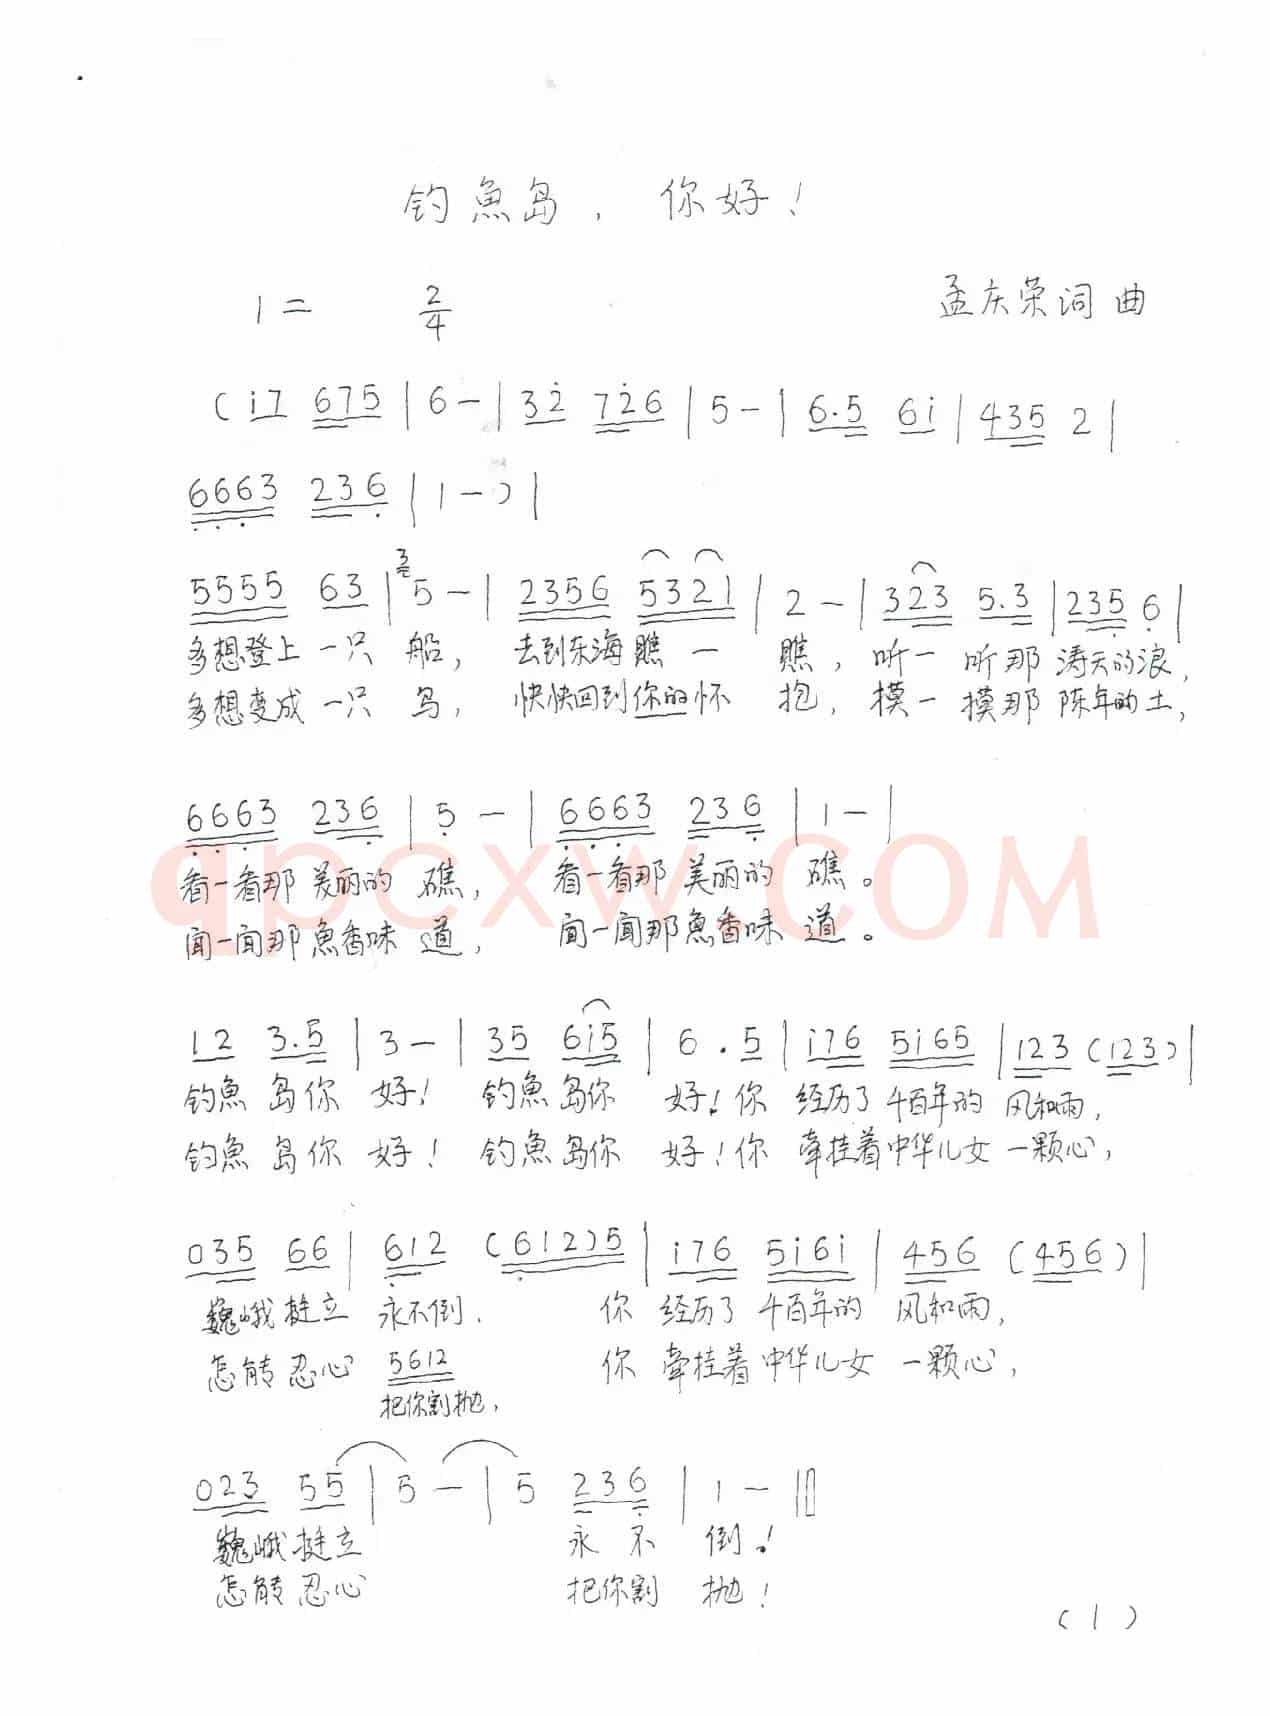 钓魚岛，你好！
1= 2/4 孟庆荣词曲
(i7 675|6-|3i 7i6|5-|6.5 6i|435 2|
6663 236|1-)|
5555 63|3 5-|2356 5321|2-|323 5.3|235 6|
多想登上一只船，去到东海瞧一瞧，听一听那涛天的浪，
多想变成一只鸟，快快回到你的怀抱，摸一摸那陈年的土，
6663 236|5-|6663 236|1-|
看一看那美丽的礁，看一看那美丽的礁。
闻一闻那魚香味道，闻一闻那魚香味道。
qpcxw.COM
12 3.5|3-|35 6i5|6.5|i76 5i65|123(123)|
钓魚岛你好！钓魚岛你好！你经历了千百年的风和雨，
钓魚岛你好！钓魚岛你好！你牵挂着中华儿女一颗心，
035 66|612 (612)5|i76 5i6i|456(456)|
巍峨挺立永不倒. 你经历了千百年的风和雨，
怎能忍心 5612 你牵挂着中华儿女一颗心，
把你割抛，
023 55|5-|5 236|1-‖
巍峨挺立 永不倒！
怎能忍心 把你割抛！
(1)